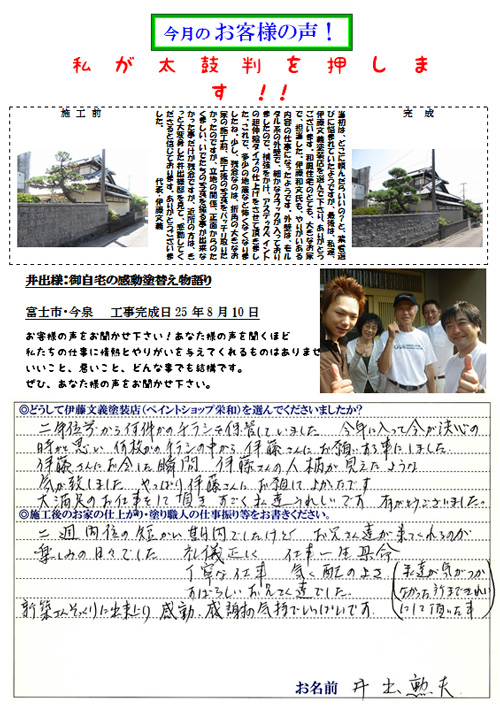 今月のお客様の声！
私が太鼓判を押しま
す！！
施工前
完成
当初は、どこに頼んだらいいの？と、業者選
びに悩まれていたようですが、最後は、私達、
伊藤文義塗装店を選んで下さり、ありがとう
ございます。和風住宅のとても、大きなお家
で、担当した、伊藤和文氏も、やりがいある
内容の仕事になったようです。外壁は、モル
タル系の外壁で、細かなクラックが入っており
ましたので、補強をかけ、アステックペイント
の超伸縮タイプの仕上げをさせて頂きまし
た。これで、多少の地震など怖くなくなりま
したね。少し、残念なのは、折角の大きなお
家の施工前、施工後の写真をバッチリ取りた
かったのですが、立地の関係、正面からのた
くましい、いでたちの写真を撮る事が出来な
かった事だけが残念ですが、近所の方は、き
っと大変身した井出様邸を見て、感動してく
ださると信じております。ありがとうございま
した。 代表 伊藤文義
井出様：御自宅の感動塗替え物語り
富士市・今泉 工事完成日25年8月10日
お客様の声をお聞かせ下さい！あなた様の声を聞くほど
私たちの仕事に情熱とやりがいを与えてくれるものはありませ
いいこと、悪いこと、どんな事でも結構です。
ぜひ、あなた様の声をお聞かせ下さい。
◎どうして伊藤文義塗装店（ペイントショップ栄和）を選んでくださいましたか？
二年位前から何件かのチラシを保管していました 今年に入って今が決心の
時かと思い 何枚かのチラシの中から 伊藤さんにお願いする事にしました。
伊藤さんにお会いした瞬間 伊藤さんの人柄が見えたような
気が致しました やっぱり伊藤さんにお願いしてよかったです
大満足のお仕事をして頂き すごく私達うれしいです 有がとうございました。
◎施工後のお家の仕上がり・塗り職人の仕事振り等をお書きください。
二週間位の短かい期間でしたけど お兄さん達が来てくれるのが
楽しみの日々でした 礼儀正しく 仕事一生懸命
丁寧な仕事 気く配のよさ（私達が気がつか
すばらしいお兄さん達でした。 なかった所まできれい
にして頂いた事）
新築さんそっくりに出来上り 感動、感謝の気持でいっぱいです。
お名前 井出 勲夫